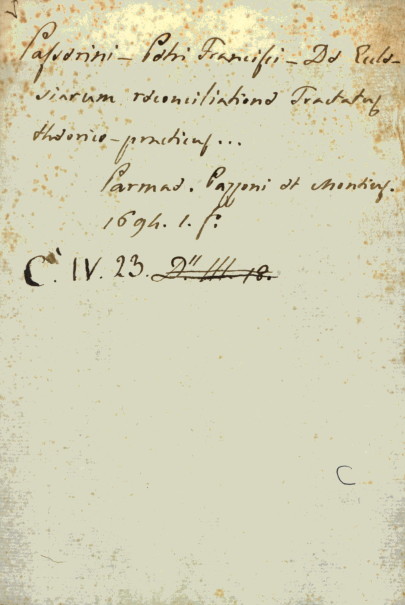 Passerini - Petri Francisci - De Eccle-
siarum reconciliatione Tractatus
theorico-practicus...
Parmae. Pazzoni et Montius.
1694. 1. f.º
C. IV. 23. D." III. 18.
C